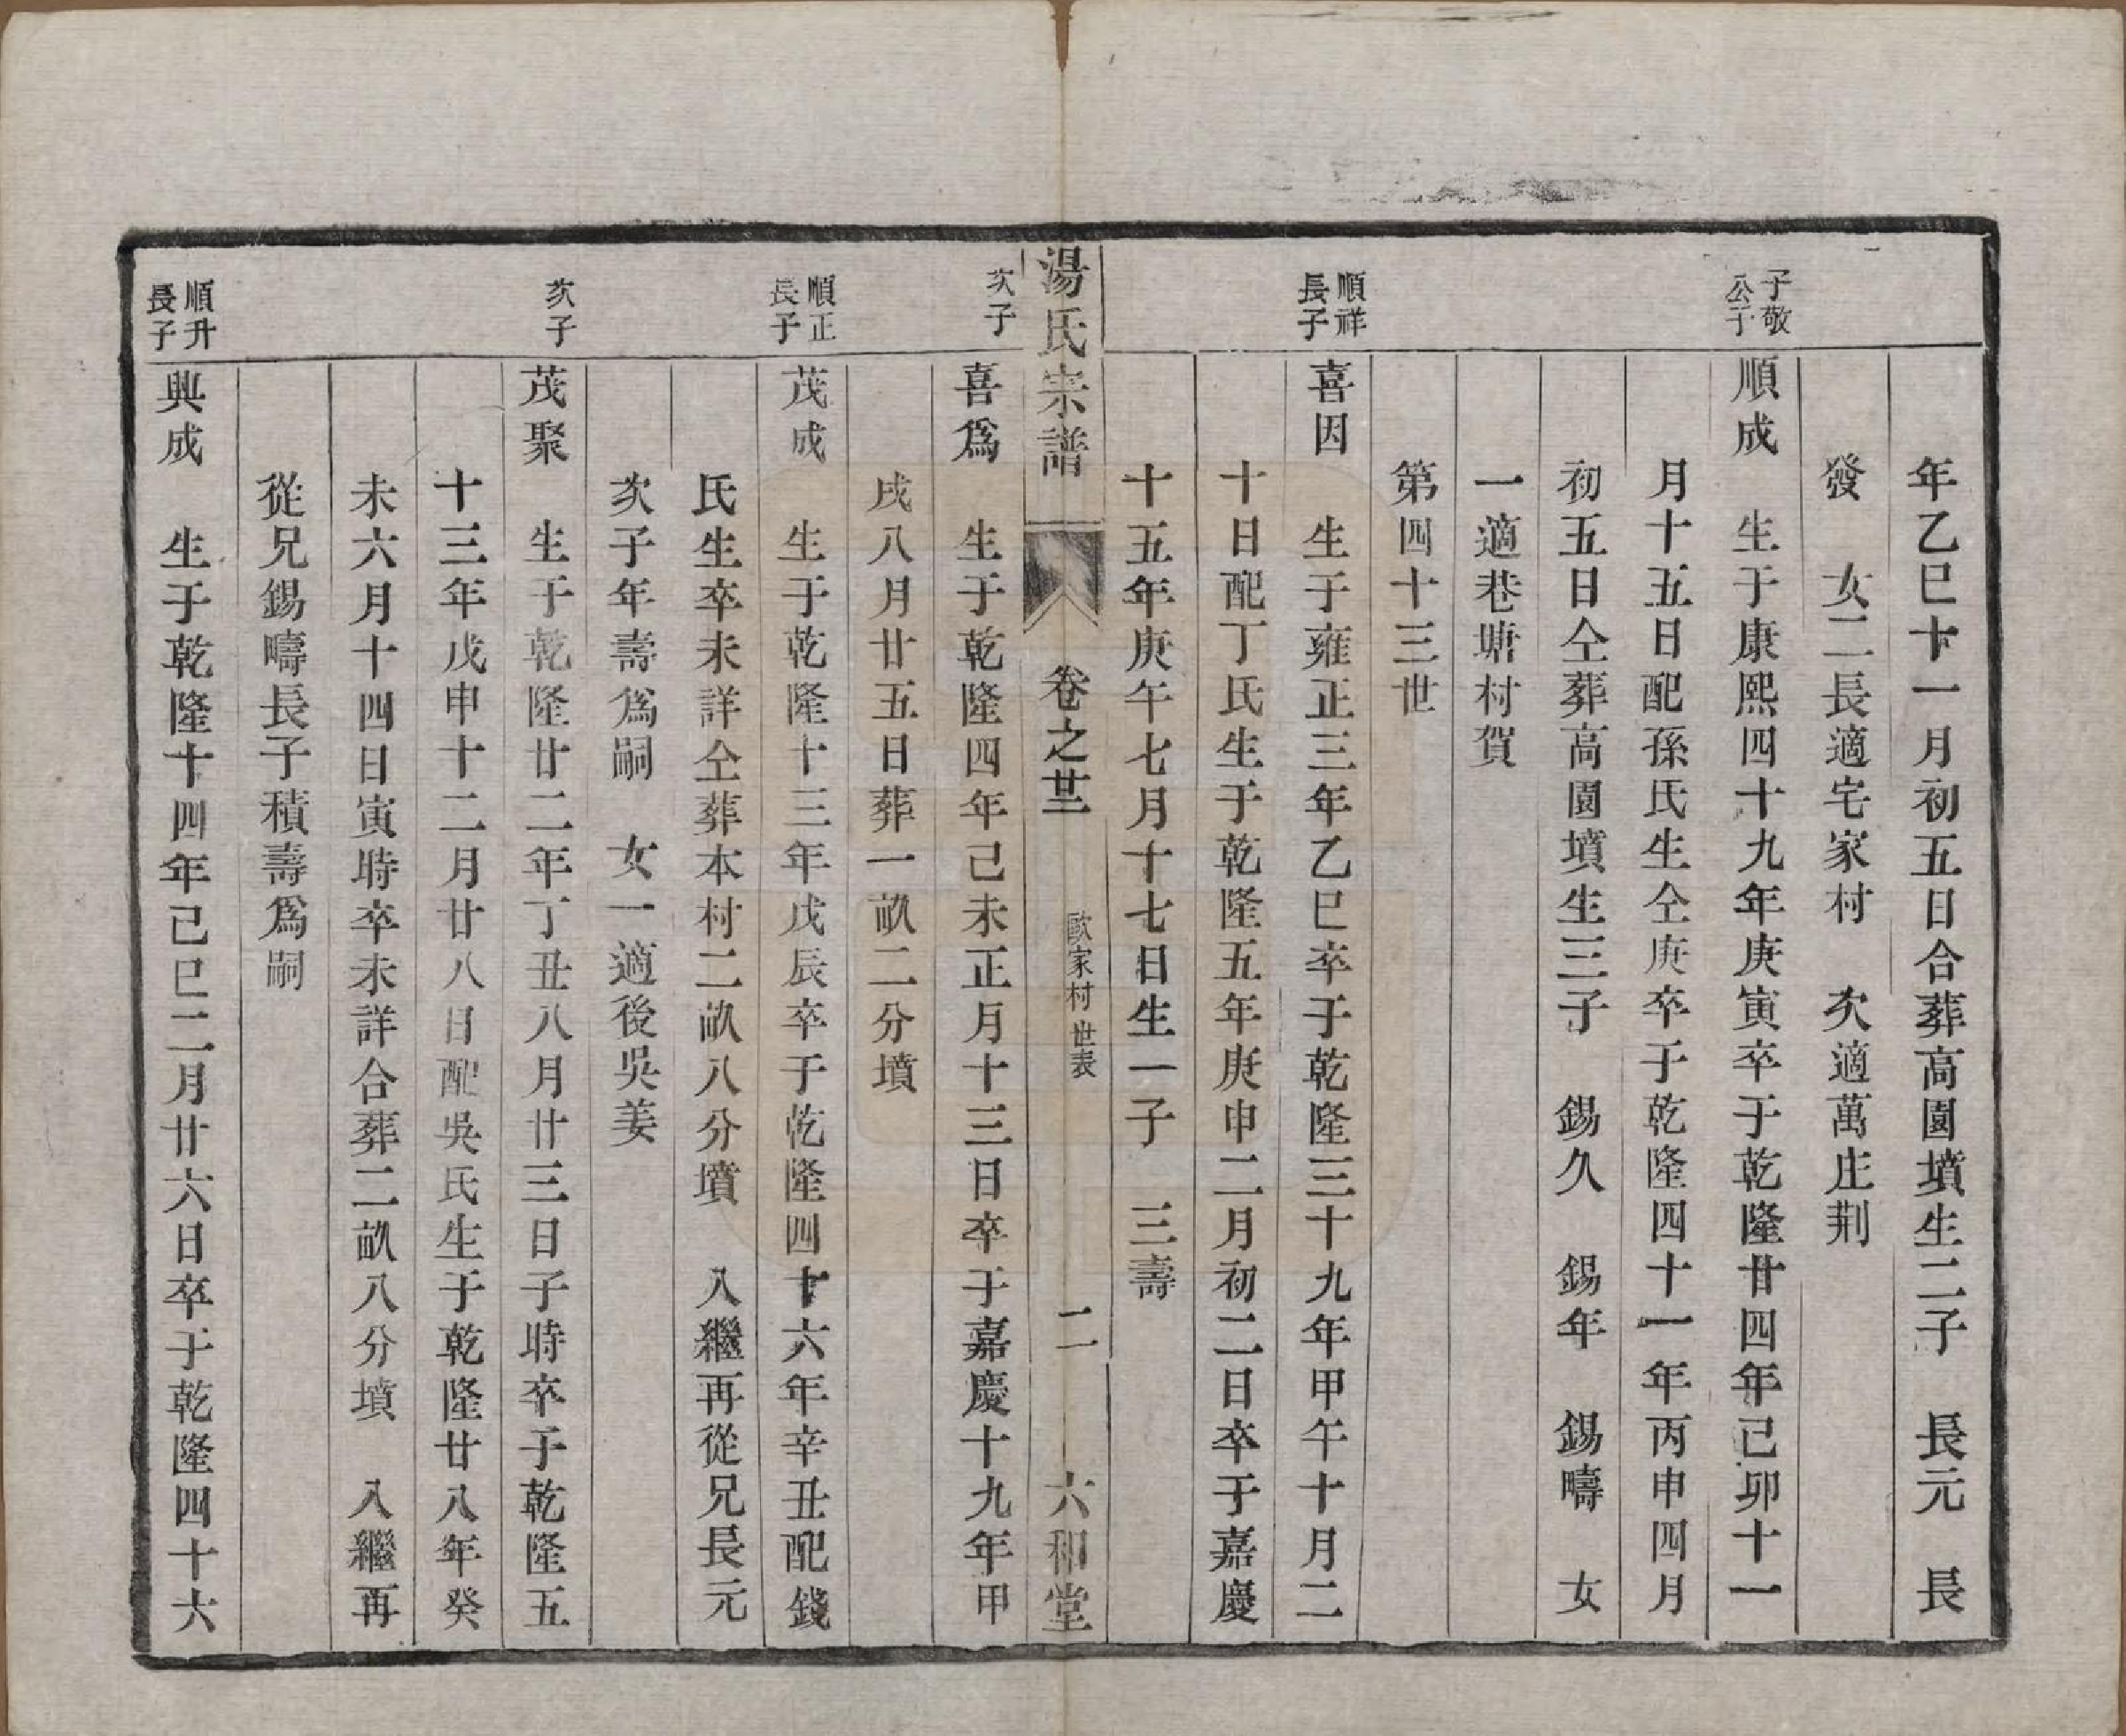 年乙巳十一月初五日合葬高園墳生二子　長元　長
發　女二長適宅家村　次適萬庄荆
子敬公子　順成　生于康熙四十九年庚寅卒于乾隆廿四年己卯十一
月十五日配孫氏生仝庚卒于乾隆四十一年丙申四月
初五日仝葬高園墳生三子　錫久　錫年　錫疇　女
一適巷塘村賀
第四十三世
順祥長子　喜因　生于雍正三年乙巳卒于乾隆三十九年甲午十月二
十日配丁氏生于乾隆五年庚申二月初二日卒于嘉慶
十五年庚午七月十七日生一子　三壽
湯氏宗譜　卷之廿二　歐家村世表　二　六和堂
次子　喜爲　生于乾隆四年己未正月十三日卒于嘉慶十九年甲
戌八月廿五日葬一畝二分墳
順正長子　茂成　生于乾隆十三年戊辰卒于乾隆四十六年辛丑配錢
氏生卒未詳仝葬本村二畝八分墳　入繼再從兄長元
次子年壽爲嗣　女一適後吳姜
次子　茂聚　生于乾隆廿二年丁丑八月廿三日子時卒于乾隆五
十三年戊申十二月廿八日配吳氏生于乾隆廿八年癸
未六月十四日寅時卒未詳合葬二畝八分墳　入繼再
從兄錫疇長子積壽爲嗣
順升長子　興成　生于乾隆十四年己巳二月廿六日卒于乾隆四十六